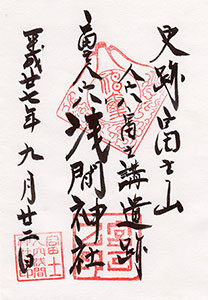 史跡富士山
人穴富士講遺跡
富士人穴浅間神社
平成廿七年九月廿二日